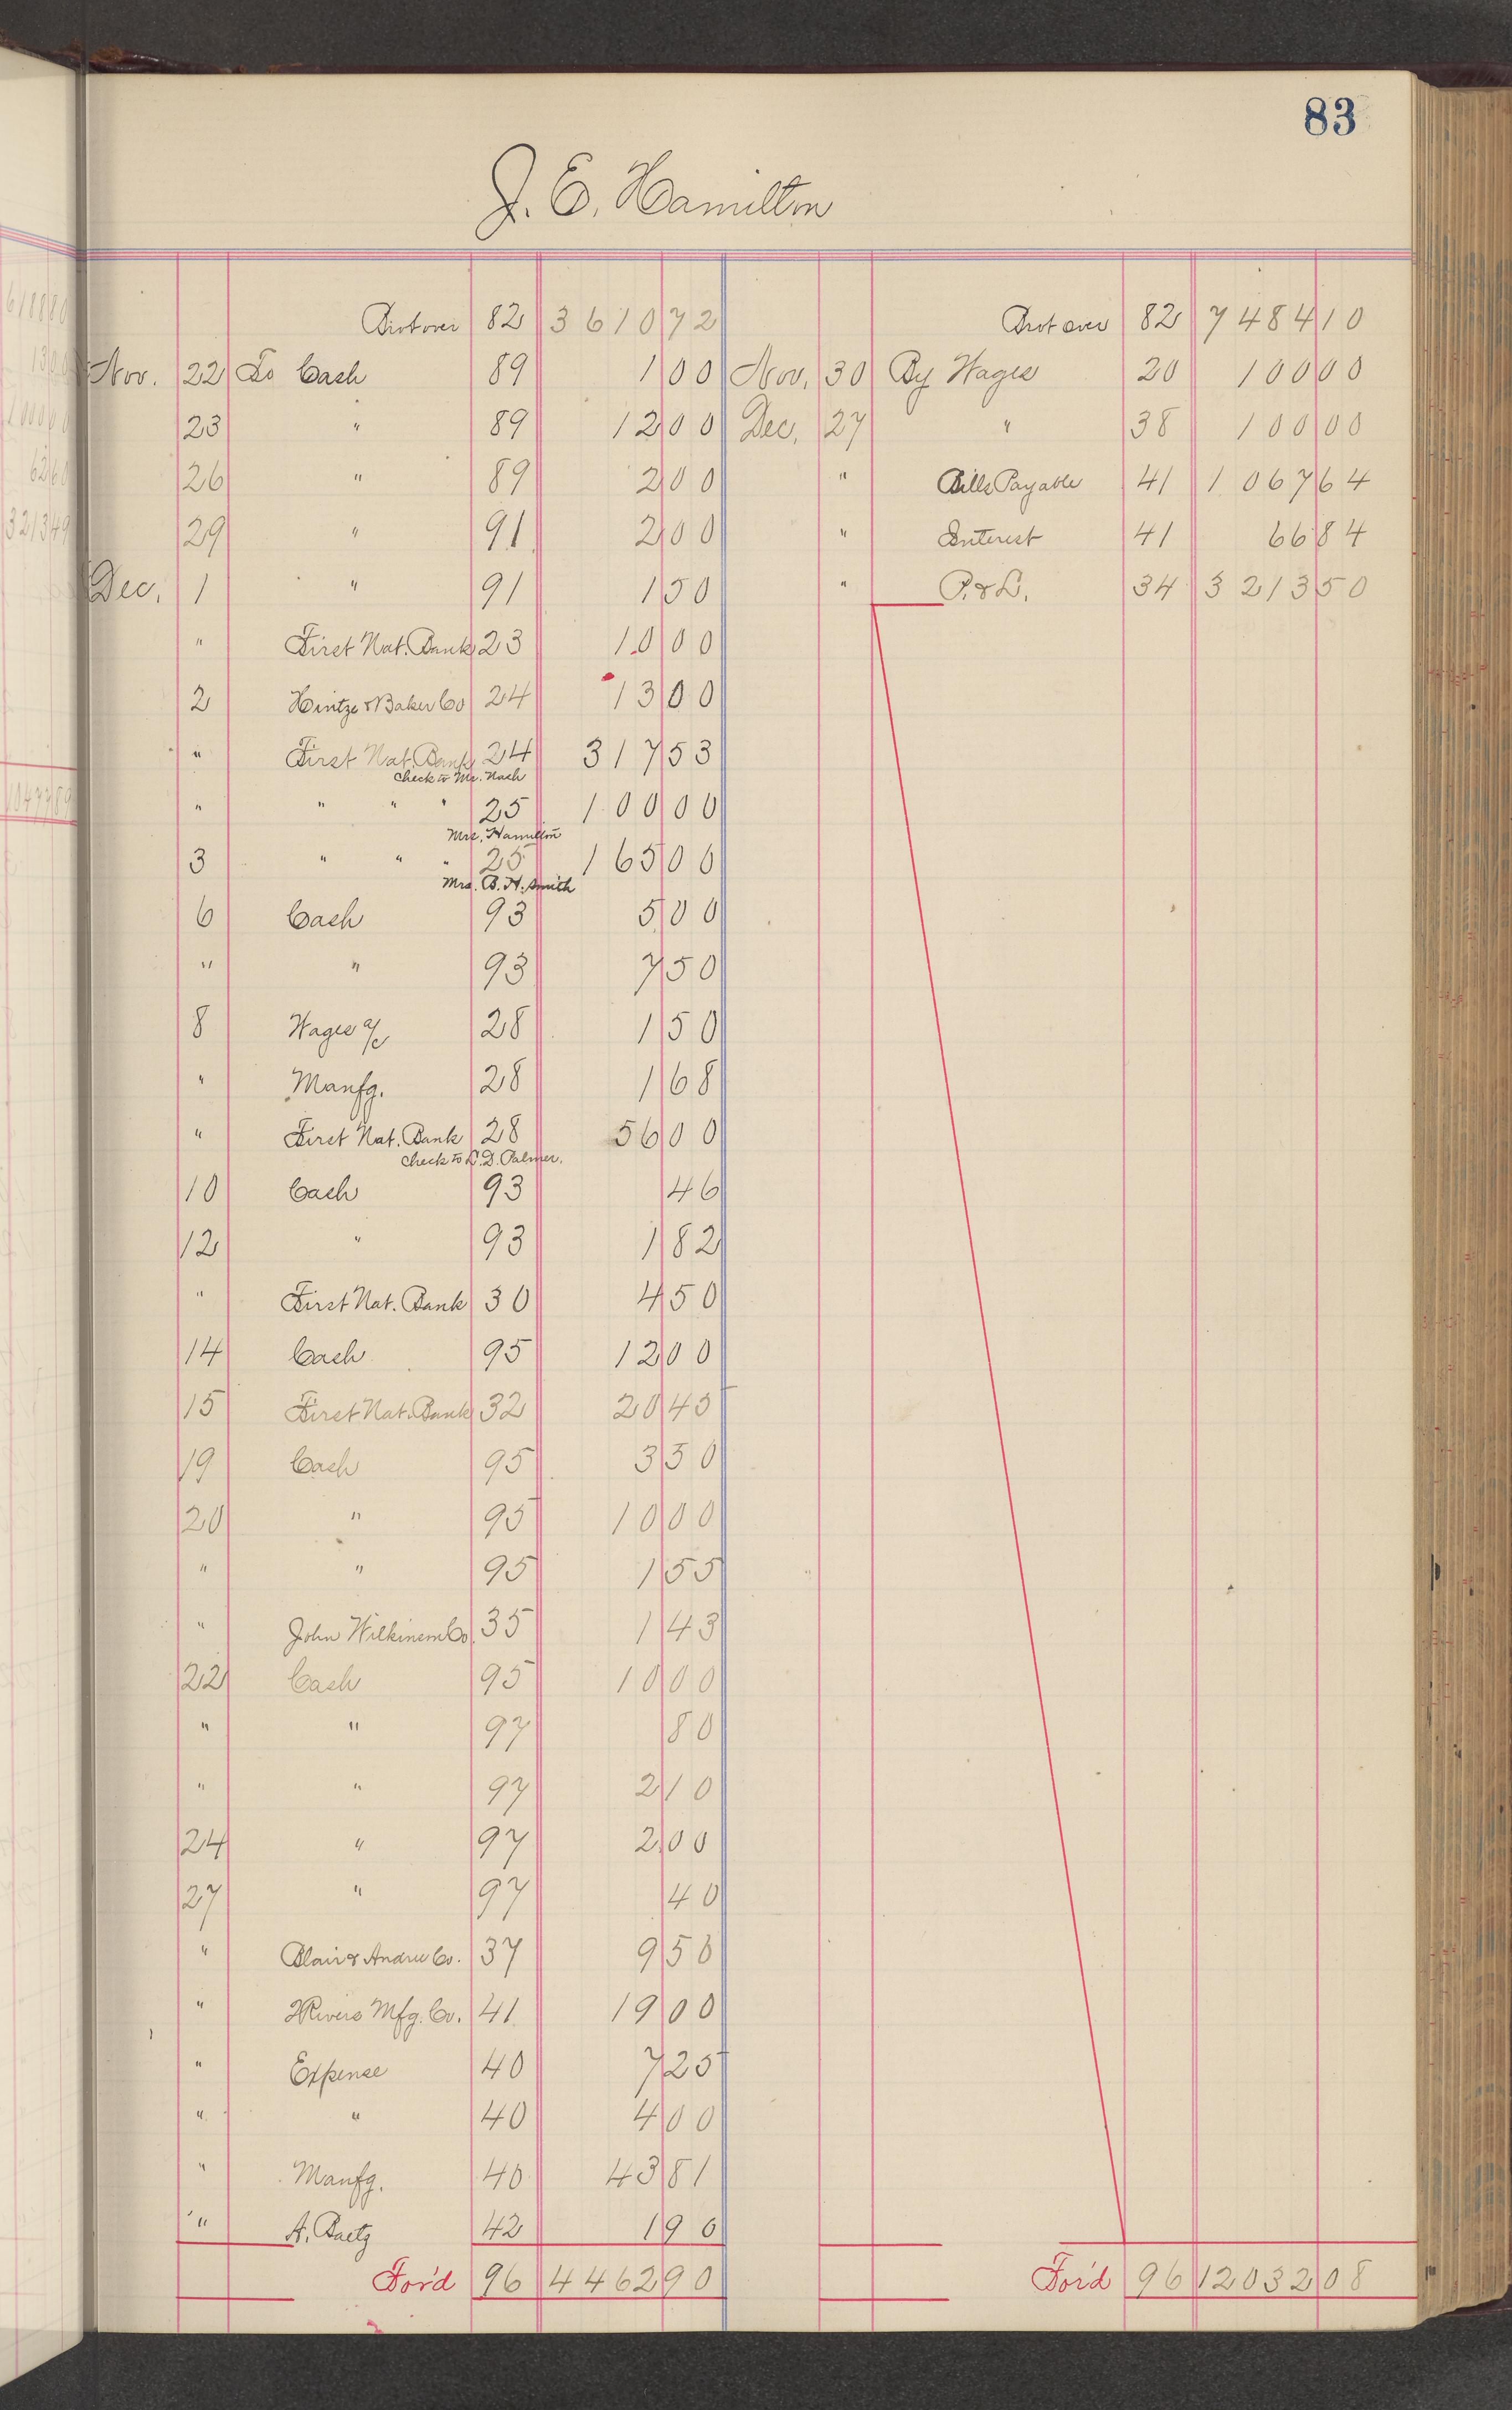 83
J. E. Hamilton
Brot over 82 3 6 1 0 7 2 Brot over 82 7 4 8 4 1 0
Nov. 22 To Cash 89 1 0 0 Nov. 30 By Wages 20 1 0 0 0 0
23 " 89 1 2 0 0 Dec. 27 " 38 1 0 0 0 0
26 " 89 2 0 0 " Bills Payable 41 1 0 6 7 6 4
29 " 91 2 0 0 " Interest 41 6 6 8 4
Dec. 1 " 91 1 5 0 " P. & L. 34 3 2 1 3 5 0
" First Nat. Bank 23 1 0 0 0
2 Hintze & Baker Co 24 1 3 0 0
" First Nat. Bank 24 3 1 7 5 3
Check to Mc. Nash
" " " " 25 1 0 0 0 0
Mrs. Hamilton
3 " " " 25 1 6 5 0 0
Mrs. B. H. Smith
6 Cash 93 5 0 0
" " 93 7 5 0
8 Wages a/c 28 1 5 0
" Manfg. 28 1 6 8
" First Nat. Bank 28 5 6 0 0
Check to L. D. Palmer.
10 Cash 93 4 6
12 " 93 1 8 2
" First Nat. Bank 30 4 5 0
14 Cash 95 1 2 0 0
15 First Nat. Bank 32 2 0 4 5
19 Cash 95 3 5 0
20 " 95 1 0 0 0
" " 95 1 5 5
" John Wilkinson Co. 35 1 4 3
22 Cash 95 1 0 0 0
" " 97 8 0
" " 97 2 1 0
24 " 97 2 0 0
27 " 97 4 0
" Blair & Andree Co. 37 9 5 0
" 2Rivers Mfg. Co. 41 1 9 0 0
" Expense 40 7 2 5
" " 40 4 0 0
" Manfg. 40 4 3 8 1
" A. Baetz 42 1 9 0
For'd 96 4 4 6 2 9 0 For'd 96 1 2 0 3 2 0 8